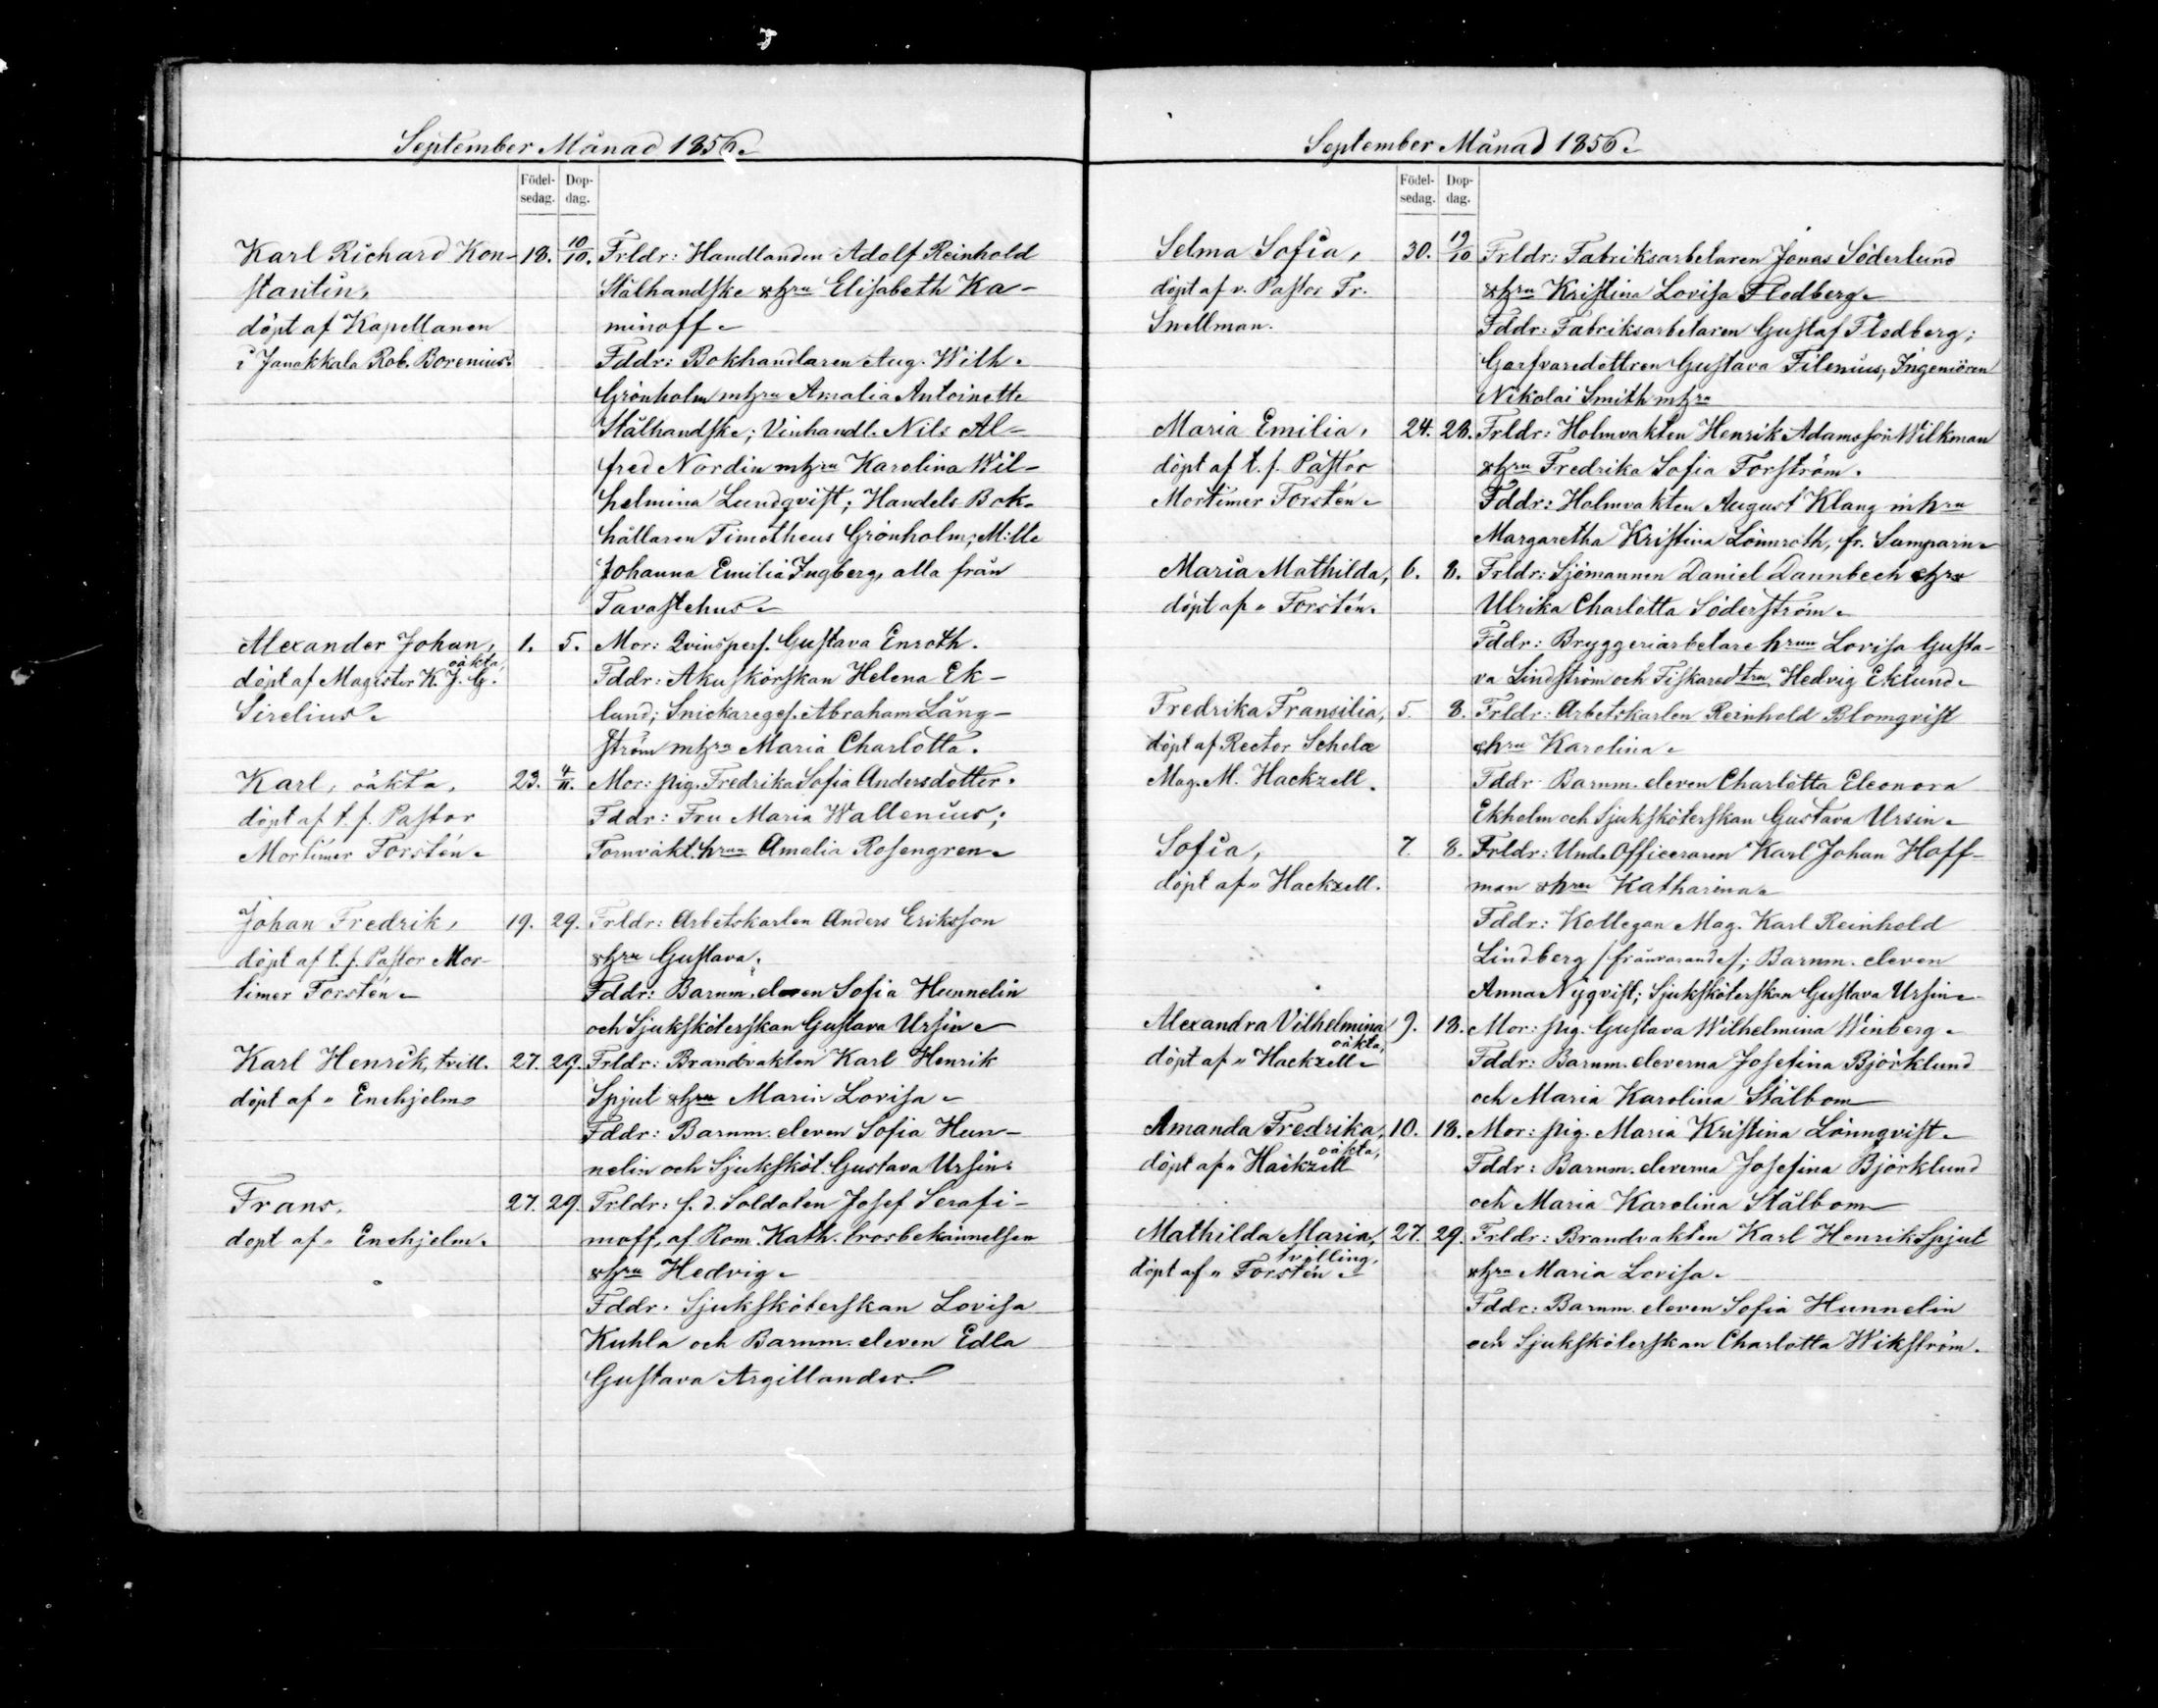 September Månad 1856.
Födel- Dop-
sedag. dag.
Karl Richard Kon- 18. 10/10. Frldr: Handlanden Adolf Reinhold
stantin, Stålhandske & hru Elisabeth Ka-
döpt af Kapellanen minoff.
i Janakkala Rob. Borenius. Fddr: Bokhandlaren Aug. Wilh.
Grönholm m hru Amalia Antoinette
Stålhandske; Vinhandl. Nils Al-
fred Nordin m hru Karolina Wil-
helmina Lundqvist; Handels Bok-
hållaren Timotheus Grönholm; M:lle
Johanna Emilia Ingberg, alla från
Tavastehus.
Alexander Johan, 1. 5. Mor: Qvinspers. Gustava Enroth.
oäkta,
döpt af Magister K. J. G. Fddr: Akuskörskan Helena Ek-
Sirelius. lund; Snickareges. Abraham Lång-
ström m hru Maria Charlotta.
Karl, oäkta, 23. 4/11. Mor: pig. Fredrika Sofia Andersdotter.
döpt af t. f. Pastor Fddr: Fru Maria Wallenius;
Mortimer Forstén. Tornväkt. hrun Amalia Rosengren.
Johan Fredrik, 19. 29. Frldr: Arbetskarlen Anders Eriksson
döpt af t. f. Pastor Mor- & hru Gustava.
timer Forstén. Fddr: Barnm. eleven Sofia Hunnelin
och Sjuksköterskan Gustava Ursin.
Karl Henrik, tvill. 27. 29. Frldr: Brandvakten Karl Henrik
döpt af " Enehjelm. Spjut & hru Maria Lovisa.
Fddr: Barnm. eleven Sofia Hun-
nelin och Sjuksköt. Gustava Ursin.
Frans, 27. 29. Frldr: f. d. Soldaten Josef Serafi-
döpt af " Enehjelm. moff, af Rom. Kath. trosbekännelsen
& hru Hedvig.
Fddr. Sjuksköterskan Lovisa
Kuhla och Barnm. eleven Edla
Gustava Argillander.
September Månad 1856.
Födel- Dop-
sedag. dag.
Selma Sofia, 30. 19/10 Frldr: Fabriksarbetaren Jonas Söderlund
döpt af v. Pastor Fr. & hru Kristina Lovisa Flodberg.
Snellman. Fddr: Fabriksarbetaren Gustaf Flodberg;
Garfvaredottren Gustava Filenius; Ingeniören
Nikolai Smith m hru
Maria Emilia, 24. 28. Frldr: Holmvakten Henrik Adamsson Wilkman
döpt af t. f. Pastor & hru Fredrika Sofia Forström.
Mortimer Forstén. Fddr: Holmvakten August Klang m hru
Margaretha Kristina Lönnroth, fr. Sumparn.
Maria Mathilda, 6. 8. Frldr: Sjömannen Daniel Dannbech & hru
döpt af " Forstén. Ulrika Charlotta Söderström.
Fddr: Bryggeriarbetare hrun Lovisa Gusta-
va Lindström och Fiskaredtrn Hedvig Eklund.
Fredrika Fransilia, 5. 8. Frldr: Arbetskarlen Reinhold Blomqvist
döpt af Rector Scholæ & hru Karolina.
Mag. M. Hackzell. Fddr Barnm. eleven Charlotta Eleonora
Ekholm och Sjuksköterskan Gustava Ursin.
Sofia, 7. 8. Frldr: Und. Officeraren Karl Johan Hoff-
döpt af " Hackzell. man & hru Katharina.
Fddr: Kollegan Mag. Karl Reinhold
Lindberg /frånvarande/; Barnm. eleven
Anna Nyqvist; Sjuksköterskan Gustava Ursin.
Alexandra Vilhelmina 9. 18. Mor: pig. Gustava Wilhelmina Winberg.
oäkta,
döpt af " Hackzell. Fddr: Barnm. eleverna Josefina Björklund
och Maria Karolina Stålbom
Amanda Fredrika, 10. 18. Mor: pig. Maria Kristina Lönnqvist.
oäkta,
döpt af " Hackzell Fddr: Barnm. eleverna Josefina Björklund
och Maria Karolina Stålbom
Mathilda Maria, 27. 29. Frldr: Brandvakten Karl Henrik Spjut
tvilling,
döpt af " Forstén. & hru Maria Lovisa.
Fddr: Barnm. eleven Sofia Hunnelin
och Sjuksköterskan Charlotta Wikström.